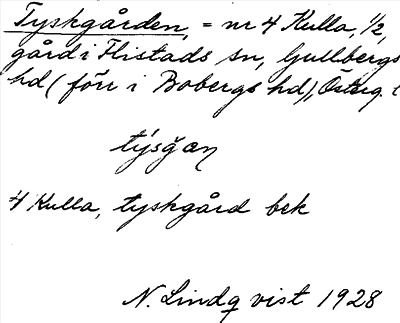 Tyskgården, = nr 4 Kulla, 1/2,
gård i Flistads sn, Gullbergs
hd (förr i Bobergs hd), Österg.
týsg̃an
4 Kulla, tyskgård bek
N. Lindqvist 1928